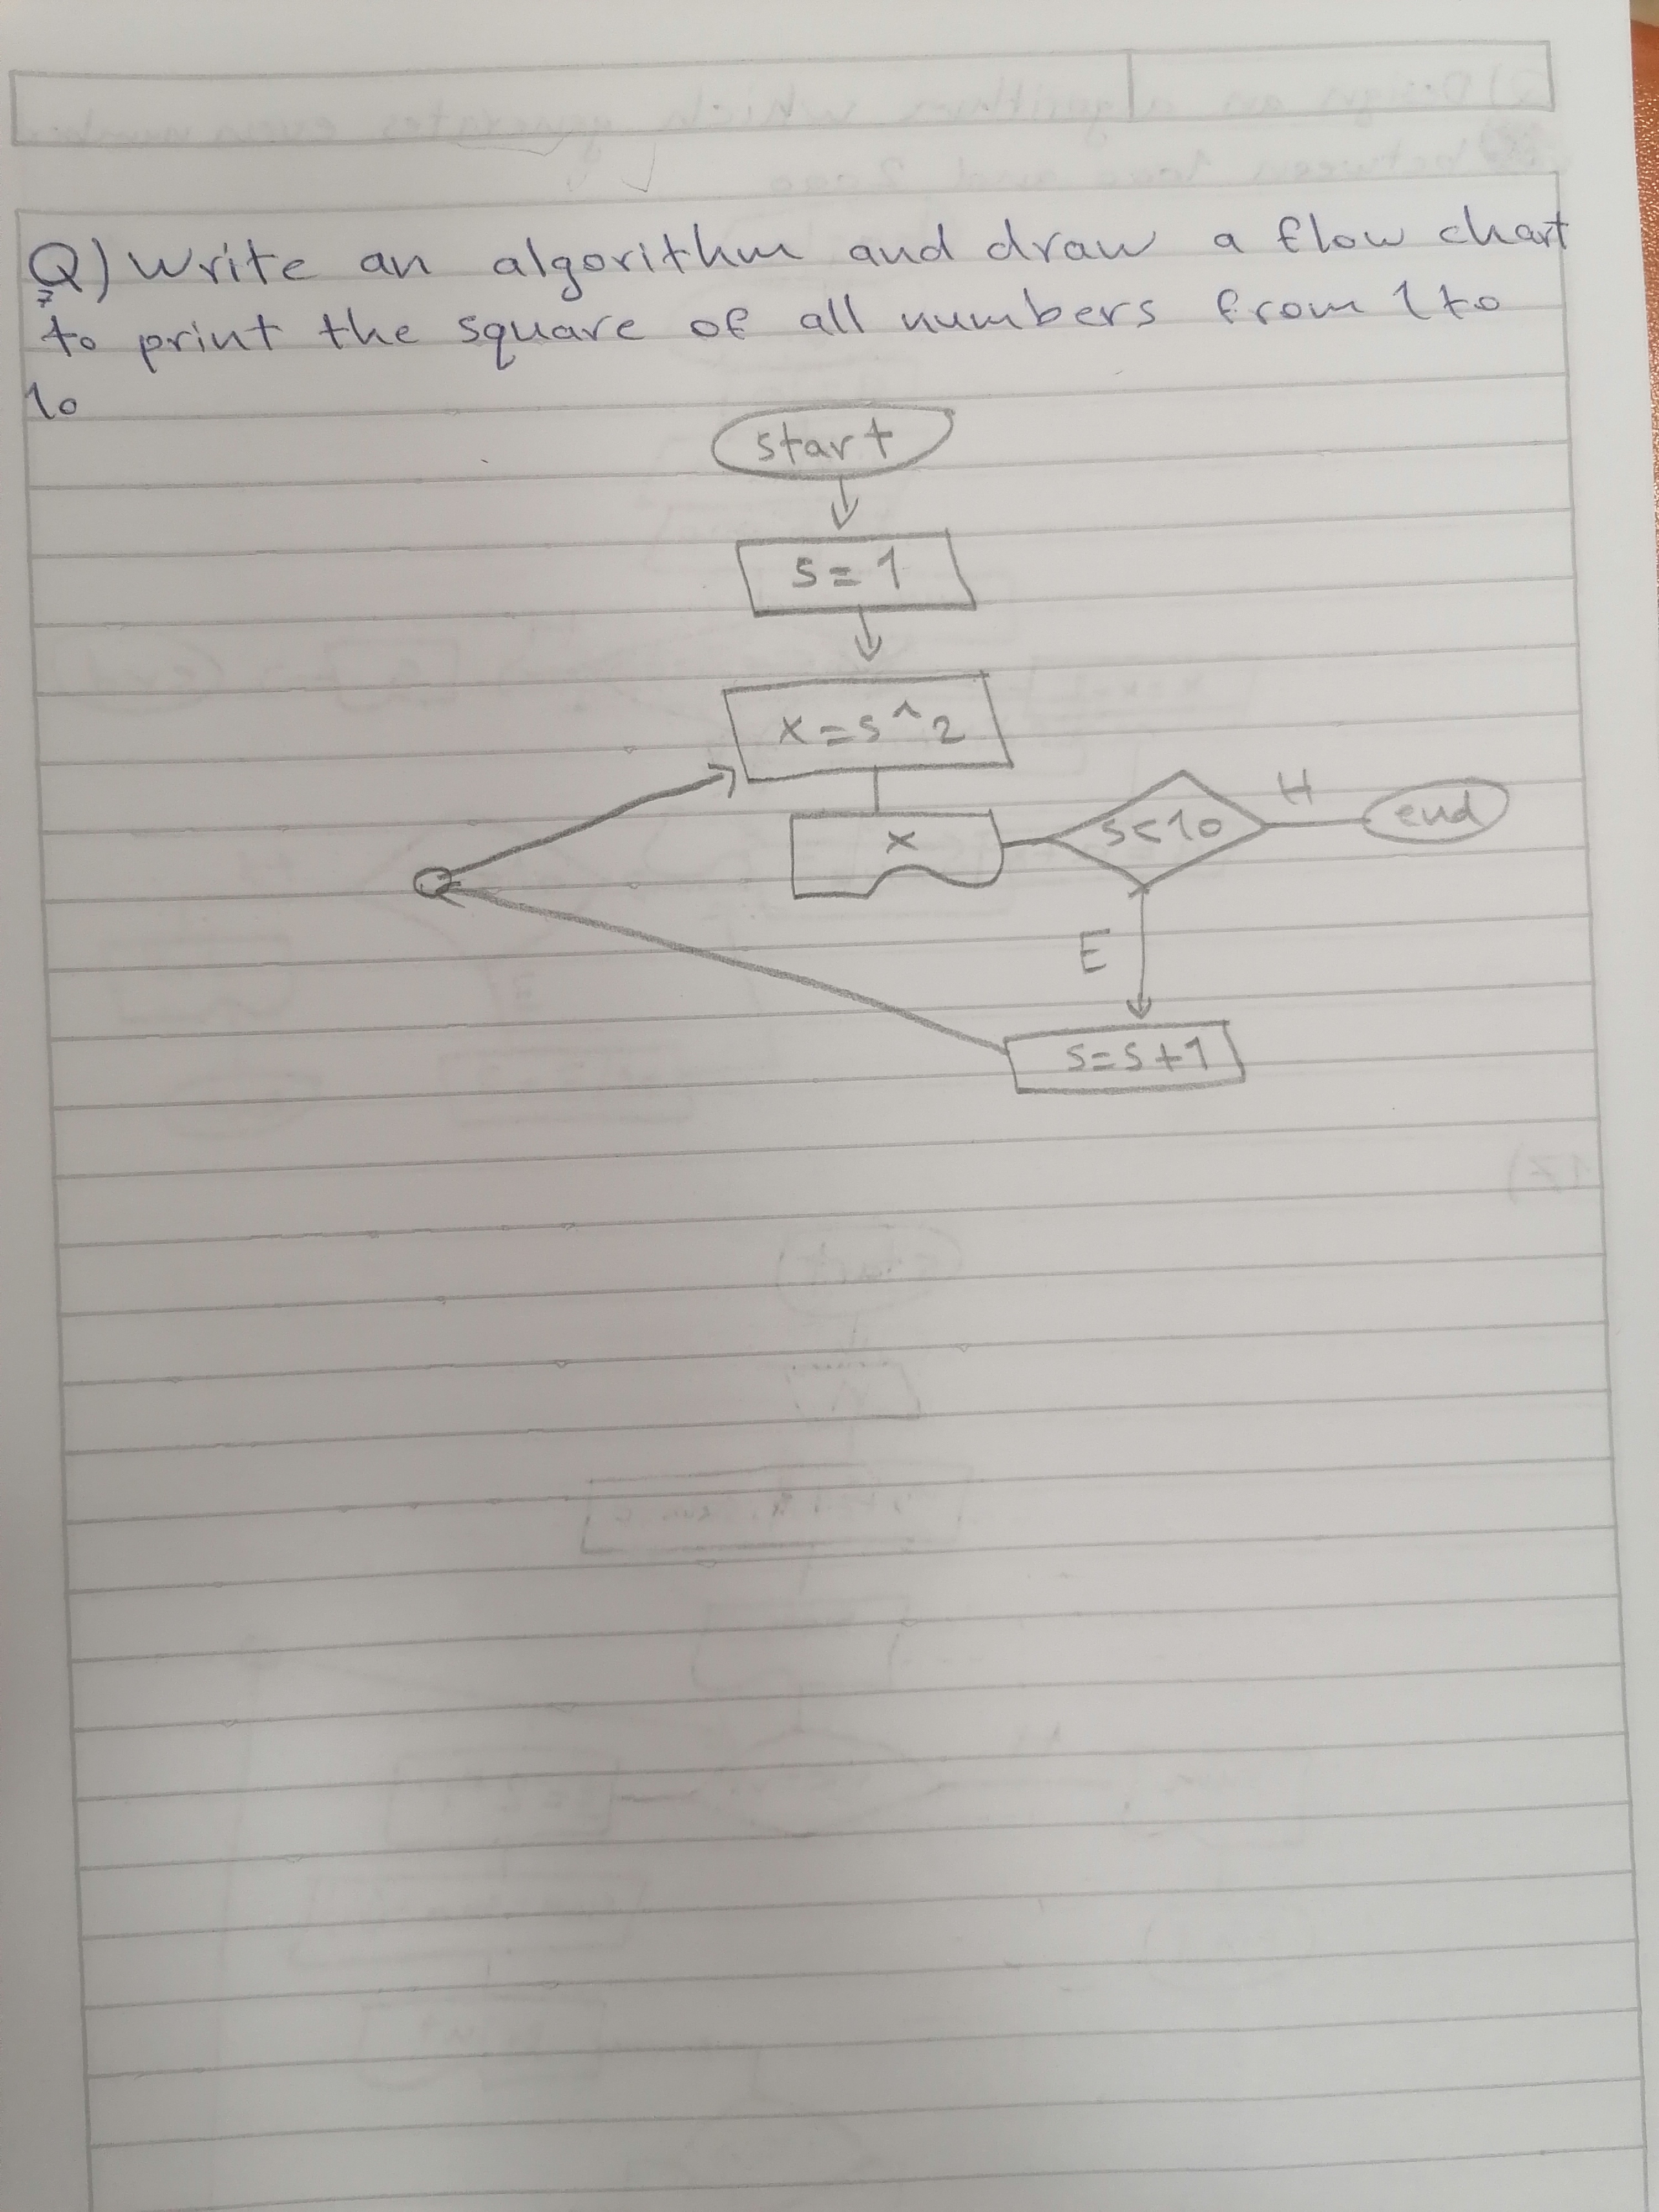 Q) Write an algorithm and draw a flow chart
to print the square of all numbers from 1 to
10
start
s=1
x=s^2
x
s<10
H
end
E
s=s+1